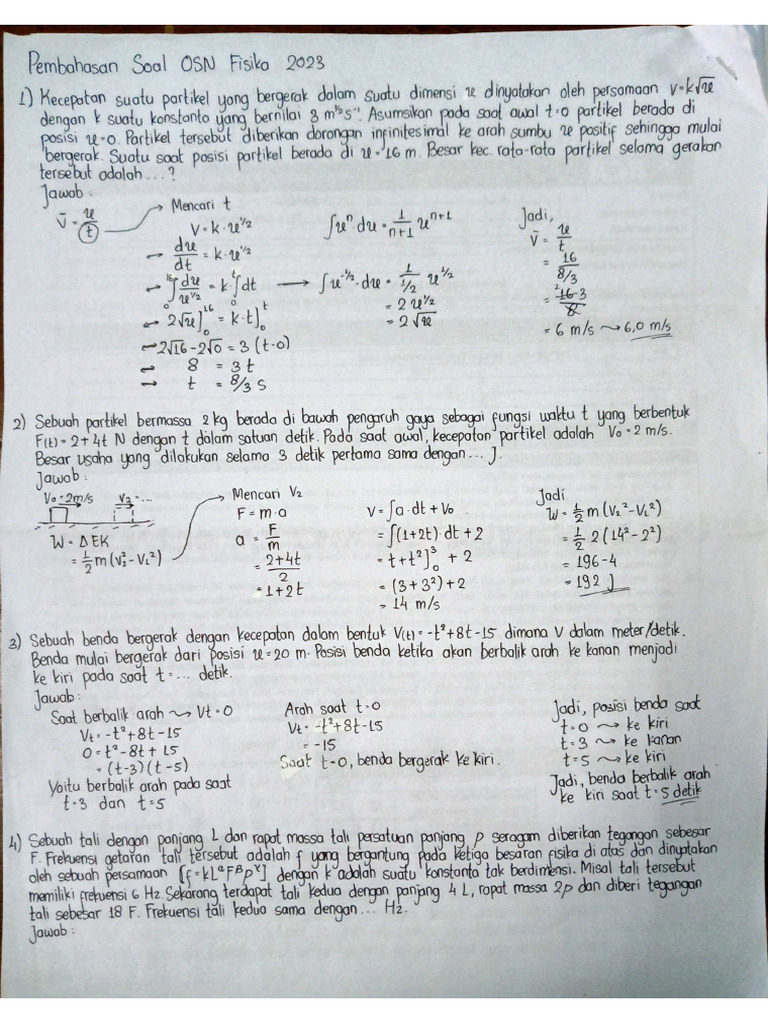 Pembahasan Soal OSN Fisika 2023
1) Kecepatan suatu partikel yang bergerak dalam suatu dimensi x dinyatakan oleh persamaan v=k√x
dengan k suatu konstanta yang bernilai 3 m^½s⁻¹. Asumsikan pada saat awal t=0 partikel berada di
posisi x=0. Partikel tersebut diberikan dorongan infinitesimal ke arah sumbu x positif sehingga mulai
bergerak. Suatu saat posisi partikel berada di x=16 m. Besar kec. rata-rata partikel selama gerakan
tersebut adalah...?
Jawab:
v̄ = x/t → Mencari t
V = k·x^1/2
dx/dt = k·x^1/2
₀¹⁶∫ dx/x^1/2 = k·₀ᵗ∫dt
2√x]₀¹⁶ = k·t]₀ᵗ
2√16-2√0 = 3(t-0)
8 = 3t
t = 8/3 s
∫xⁿ dx = 1/(n+1) x^(n+1)
→ ∫x^-1/2·dx = 1/(1/2) x^1/2
= 2x^1/2
= 2√x
Jadi,
v̄ = x/t
= 16/(8/3)
= 16·3/8
= 6 m/s ⤳ 6,0 m/s
2) Sebuah partikel bermassa 2 kg berada di bawah pengaruh gaya sebagai fungsi waktu t yang berbentuk
F(t) = 2+4t N dengan t dalam satuan detik. Pada saat awal, kecepatan partikel adalah V₀=2 m/s.
Besar usaha yang dilakukan selama 3 detik pertama sama dengan... J.
Jawab:
V₀=2m/s V₂=...
W = ΔEK
= 1/2 m(V₂²-V₁²)
Mencari V₂
F = m·a
a = F/m
= (2+4t)/2
= 1+2t
V = ∫a·dt + V₀
= ∫(1+2t)·dt + 2
= t+t²]₀³ + 2
= (3+3²)+2
= 14 m/s
Jadi
W = 1/2 m(V₂²-V₁²)
= 1/2 2(14²-2²)
= 196-4
= 192 J
3) Sebuah benda bergerak dengan kecepatan dalam bentuk V(t)=-t²+8t-15 dimana V dalam meter/detik.
Benda mulai bergerak dari posisi x=20 m. Posisi benda ketika akan berbalik arah ke kanan menjadi
ke kiri pada saat t=... detik.
Jawab:
Saat berbalik arah ⤳ Vt=0
Vt = -t²+8t-15
0 = t²-8t+15
= (t-3)(t-5)
Yaitu berbalik arah pada saat
t=3 dan t=5
Arah saat t=0
Vt = -t²+8t-15
= -15
Saat t=0, benda bergerak ke kiri.
Jadi, posisi benda saat
t=0 ⤳ ke kiri
t=3 ⤳ ke kanan
t=5 ⤳ ke kiri
Jadi, benda berbalik arah
ke kiri saat t=5 detik
4) Sebuah tali dengan panjang L dan rapat massa tali persatuan panjang ρ seragam diberikan tegangan sebesar
F. Frekuensi getaran tali tersebut adalah f yang bergantung pada ketiga besaran fisika di atas dan dinyatakan
oleh sebuah persamaan [f=kL^αF^βρ^γ] dengan k adalah suatu konstanta tak berdimensi. Misal tali tersebut
memiliki frekuensi 6 Hz. Sekarang terdapat tali kedua dengan panjang 4 L, rapat massa 2ρ dan diberi tegangan
tali sebesar 18 F. Frekuensi tali kedua sama dengan... Hz.
Jawab: